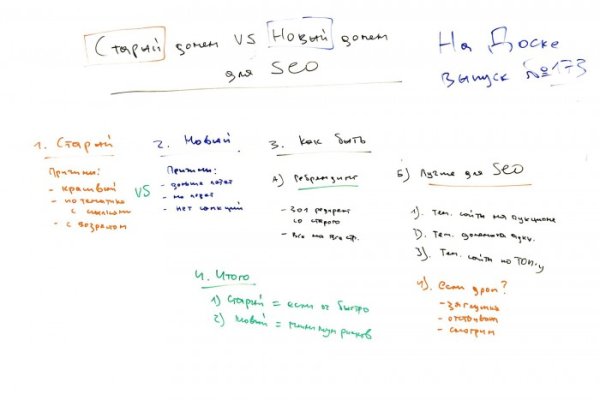 Старый домен VS Новый домен
для SEO
На Доске
Выпуск №173
1. Старый
Причины:
- красивый
- по тематике
с ссылками
- с возрастом
VS
2. Новый
Причины:
- дольше
- не
- нет санкций
3. Как быть
А) Ребрендинг
- 301 редирект
со старого
- Все на все стр.
Б) Лучше для SEO
1). Тем. сайты на аукционе
2). Тем. домены аукц.
3). Тем. сайты по ТОП-у
4). если дроп?
- заглушка
- отстаивать
- смотрим
4. Итого
1) Старый = если ок быстро
2) Новый = минимум рисков